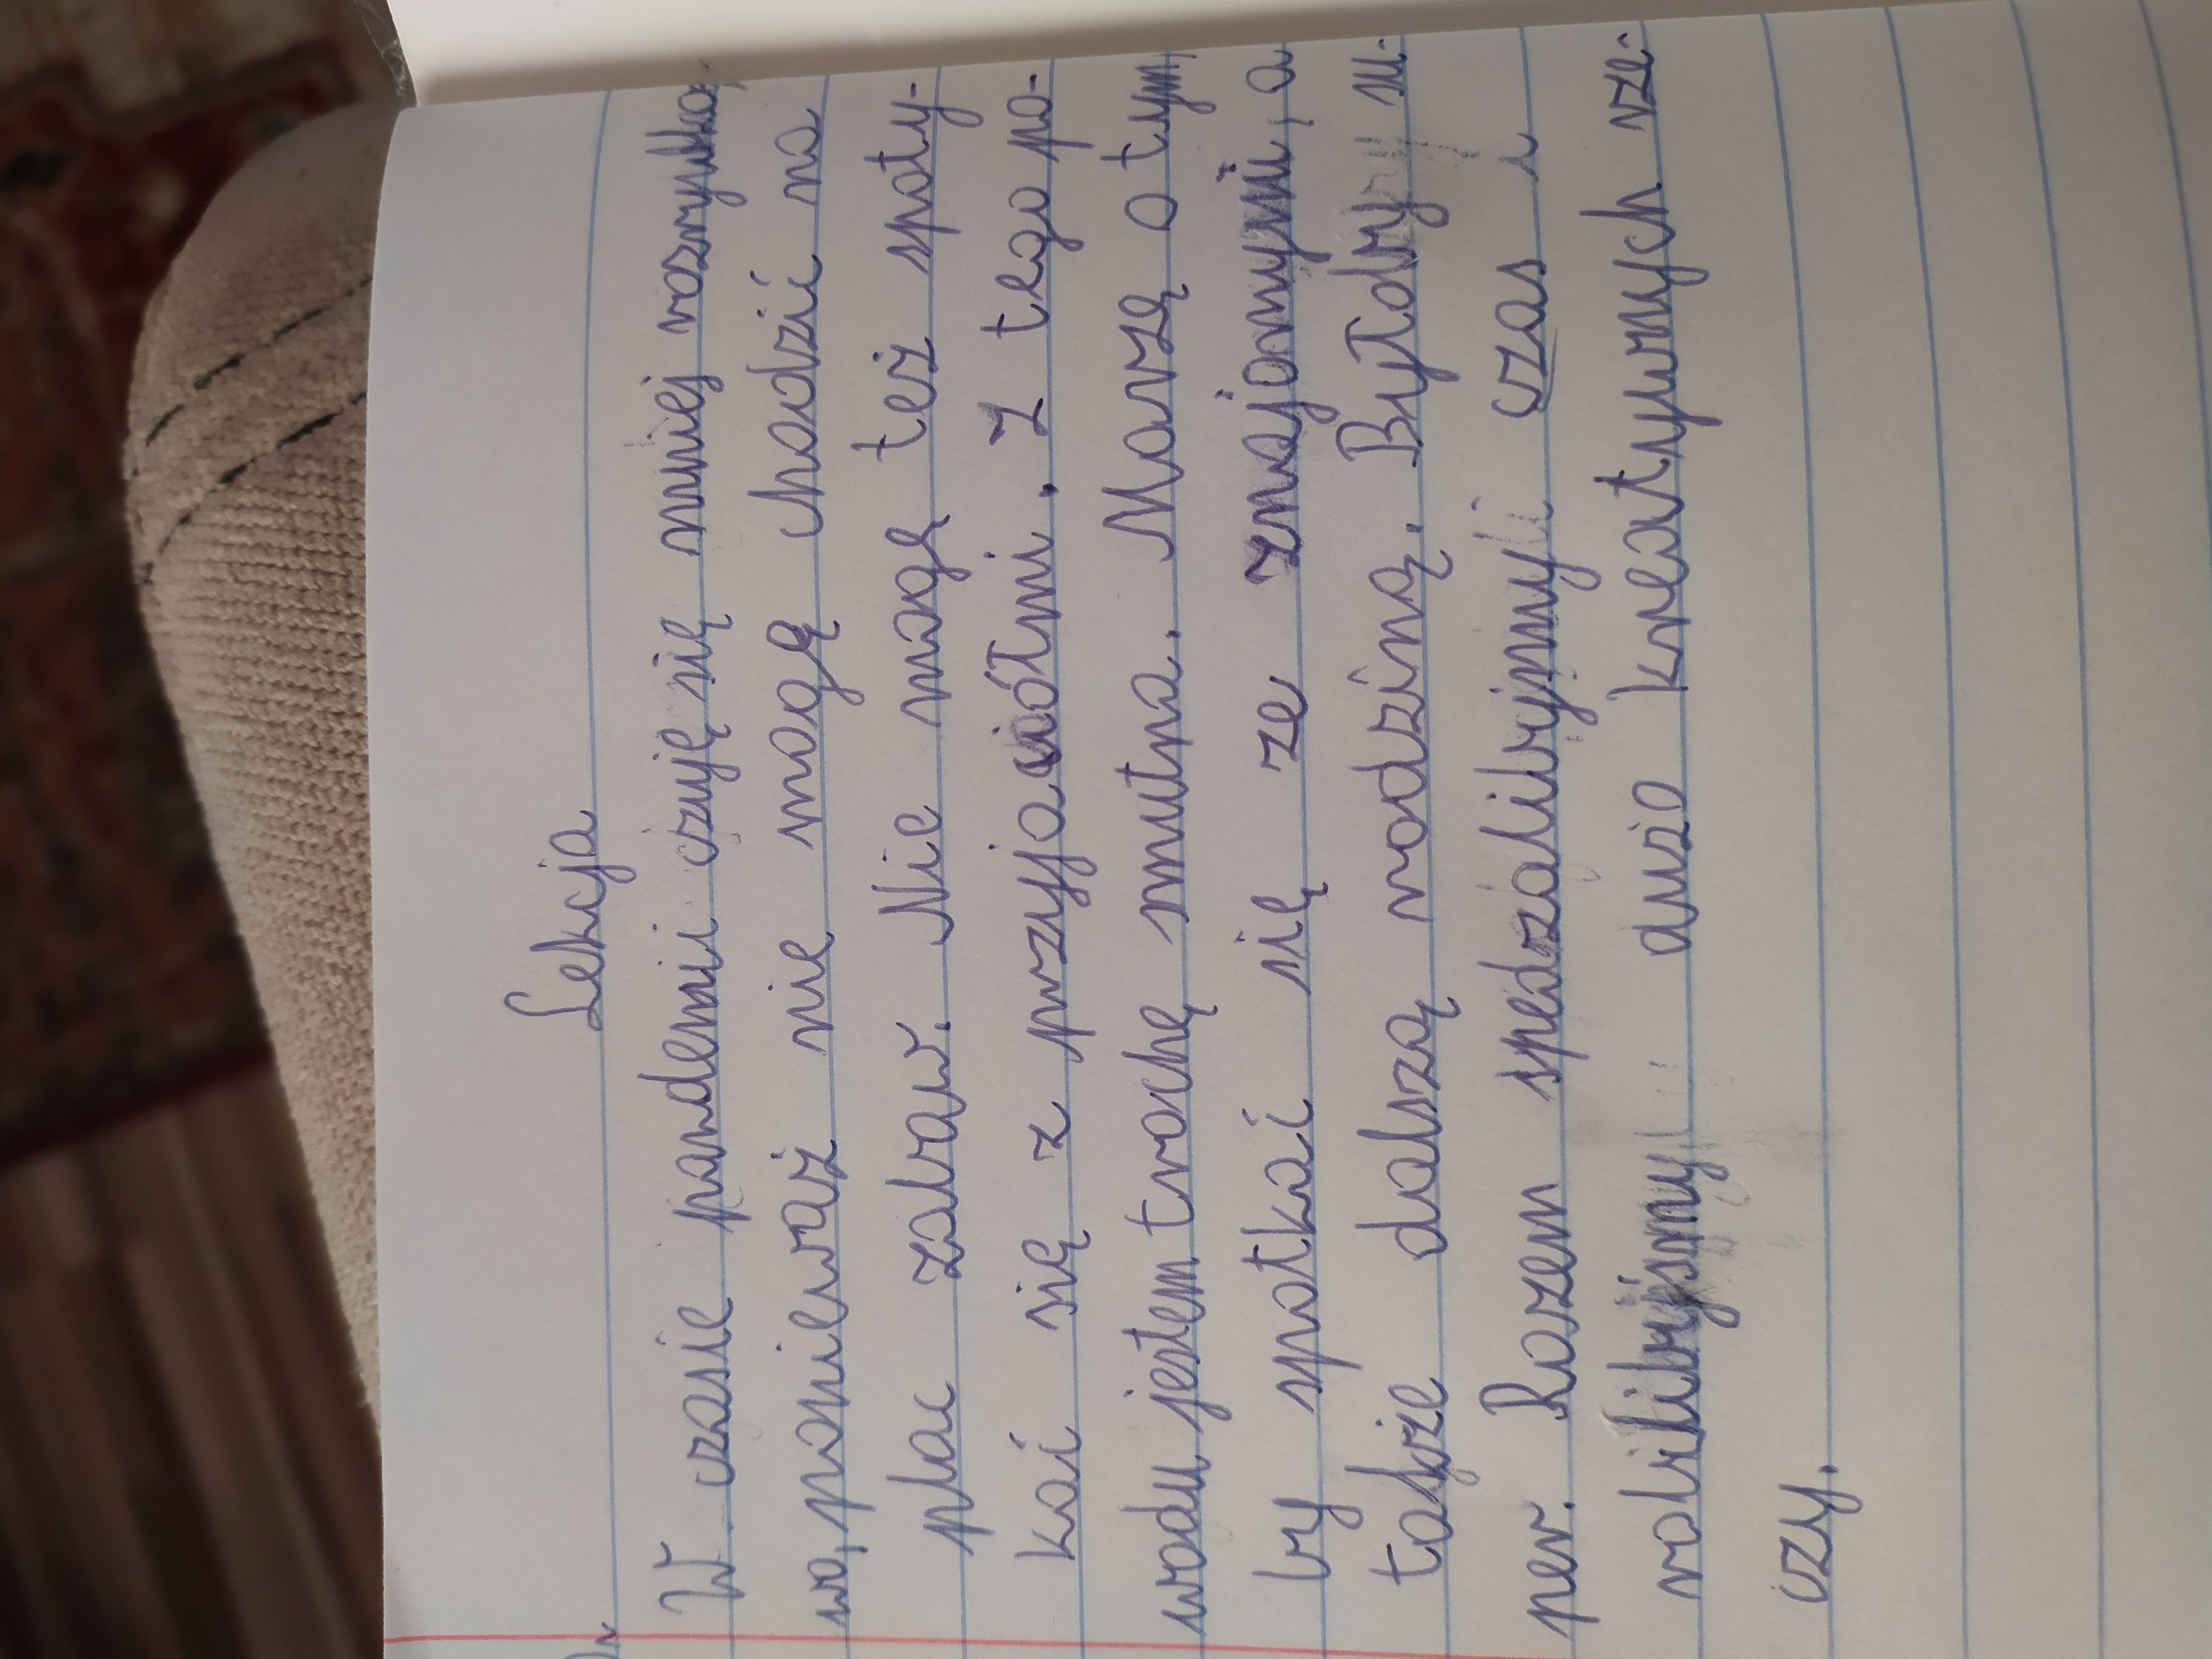 Lekcja
W czasie pandemii czuję się mniej rozrywko-
wo, ponieważ nie mogę chodzić na
plac zabaw. Nie mogę też spoty-
kać się z przyjaciółmi. Z tego po-
wodu jestem trochę smutna. Marzę o tym,
by spotkać się ze znajomymi, a
także dalszą rodziną. Byłoby su-
per. Razem spędzalibyśmy czas i
robilibyśmy dużo kreatywnych rze-
czy.